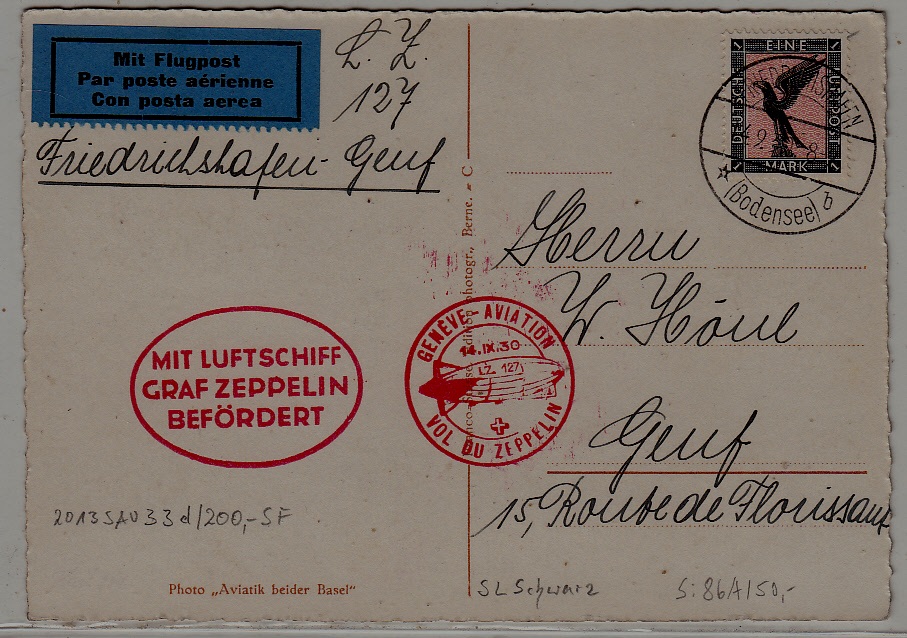 Mit Flugpost
Par poste aérienne
Con posta aerea
L. Z.
127
Friedrichshafen - Genf
EINE
DEUTSCHE
FLUGPOST
1 MARK 1
FRIEDRICHSHAFEN
(Bodensee) b
Herrn
W. Hönl
Genf
15, Route de Florissant
MIT LUFTSCHIFF
GRAF ZEPPELIN
BEFÖRDERT
GENÈVE-AVIATION
14.IX.30
LZ. 127
VOL DU ZEPPELIN
photogr., Berne. – C
2013 SAU 33d/200,- SF
Photo „Aviatik beider Basel"
SL Schwarz
S: 86A/50,-